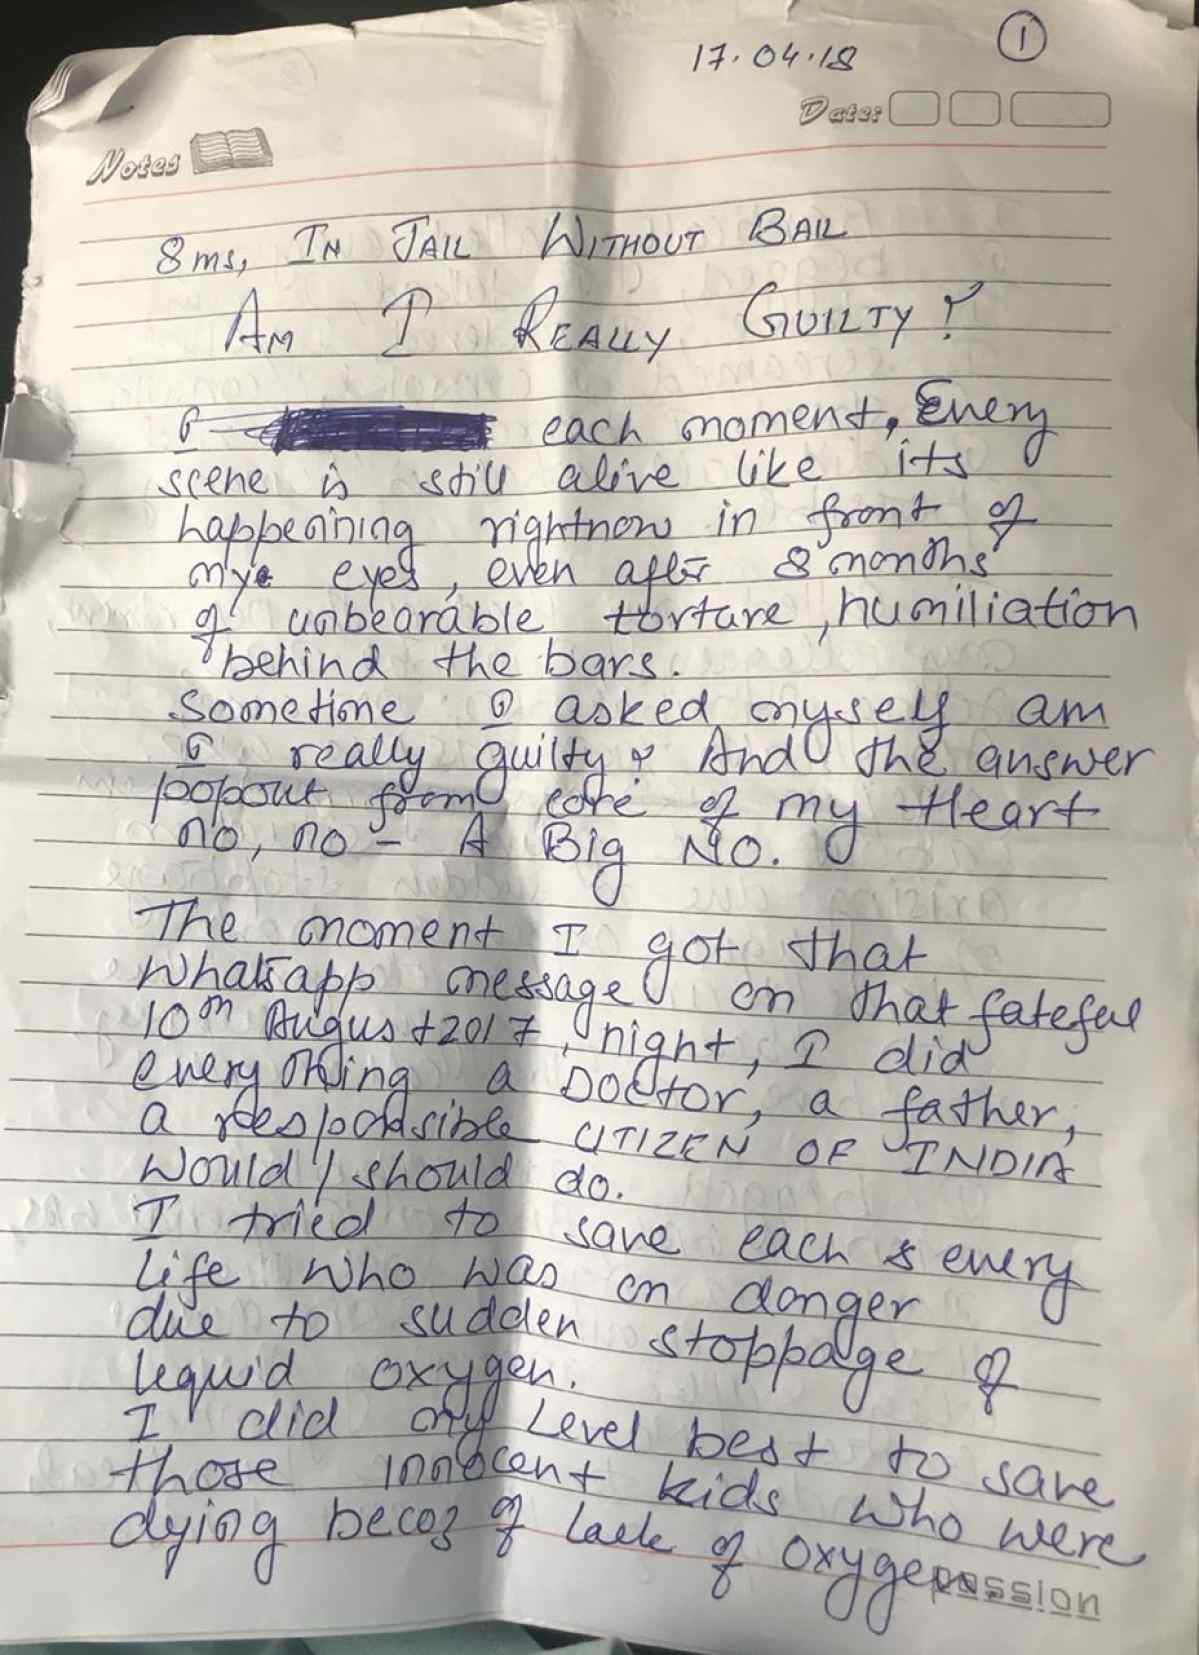 17.04.18
1
Date:
Notes
8ms, IN JAIL WITHOUT BAIL
AM I REALLY GUILTY?
I each moment, Every
scene is still alive like its
happening rightnow in front of
my eyes, even after 8 months
of unbearable torture, humiliation
behind the bars.
Sometime I asked myself am
I really guilty? And the answer
popout from core of my Heart
no, no - A Big NO.
The moment I got that
Whatsapp message on that fateful
10th August 2017, night, I did
everything a Doctor, a father,
a responsible CITIZEN OF INDIA
would/should do.
I tried to save each & every
life who was on danger
due to sudden stoppage of
liquid oxygen.
I did my Level best to save
those innocent kids who were
dying becoz of lack of oxygen.
passion